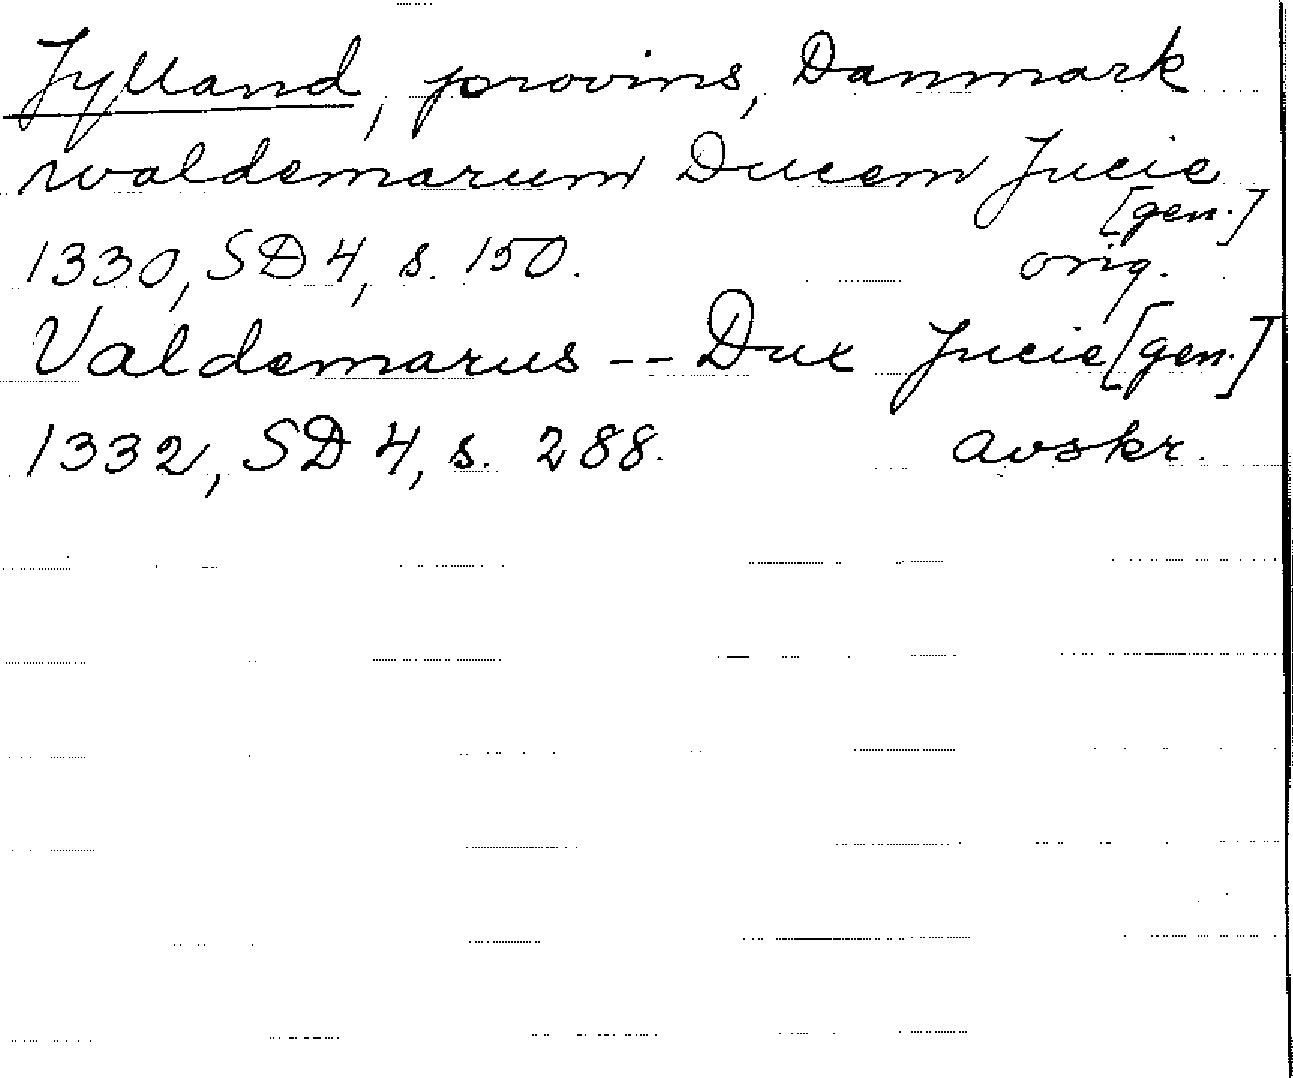 Jylland, provins, Danmark
waldemarum Ducem Jucie
[gen.]
1330, SD 4, s. 150. orig.
Valdemarus -- Dux Jucie [gen.]
1332, SD 4, s. 288. avskr.